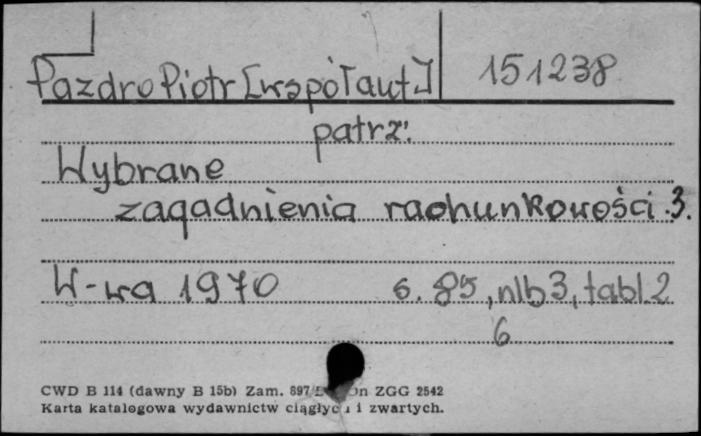 Pazdro Piotr [współaut] 151238
patrz:
Wybrane
zagadnienia rachunkowości.3.
W-wa 1970 s. 85, nlb 3, tabl. 2
6
CWD B 114 (dawny B 15b) Zam. 897 ZGG 2542
Karta katalogowa wydawnictw ciągłych i zwartych.